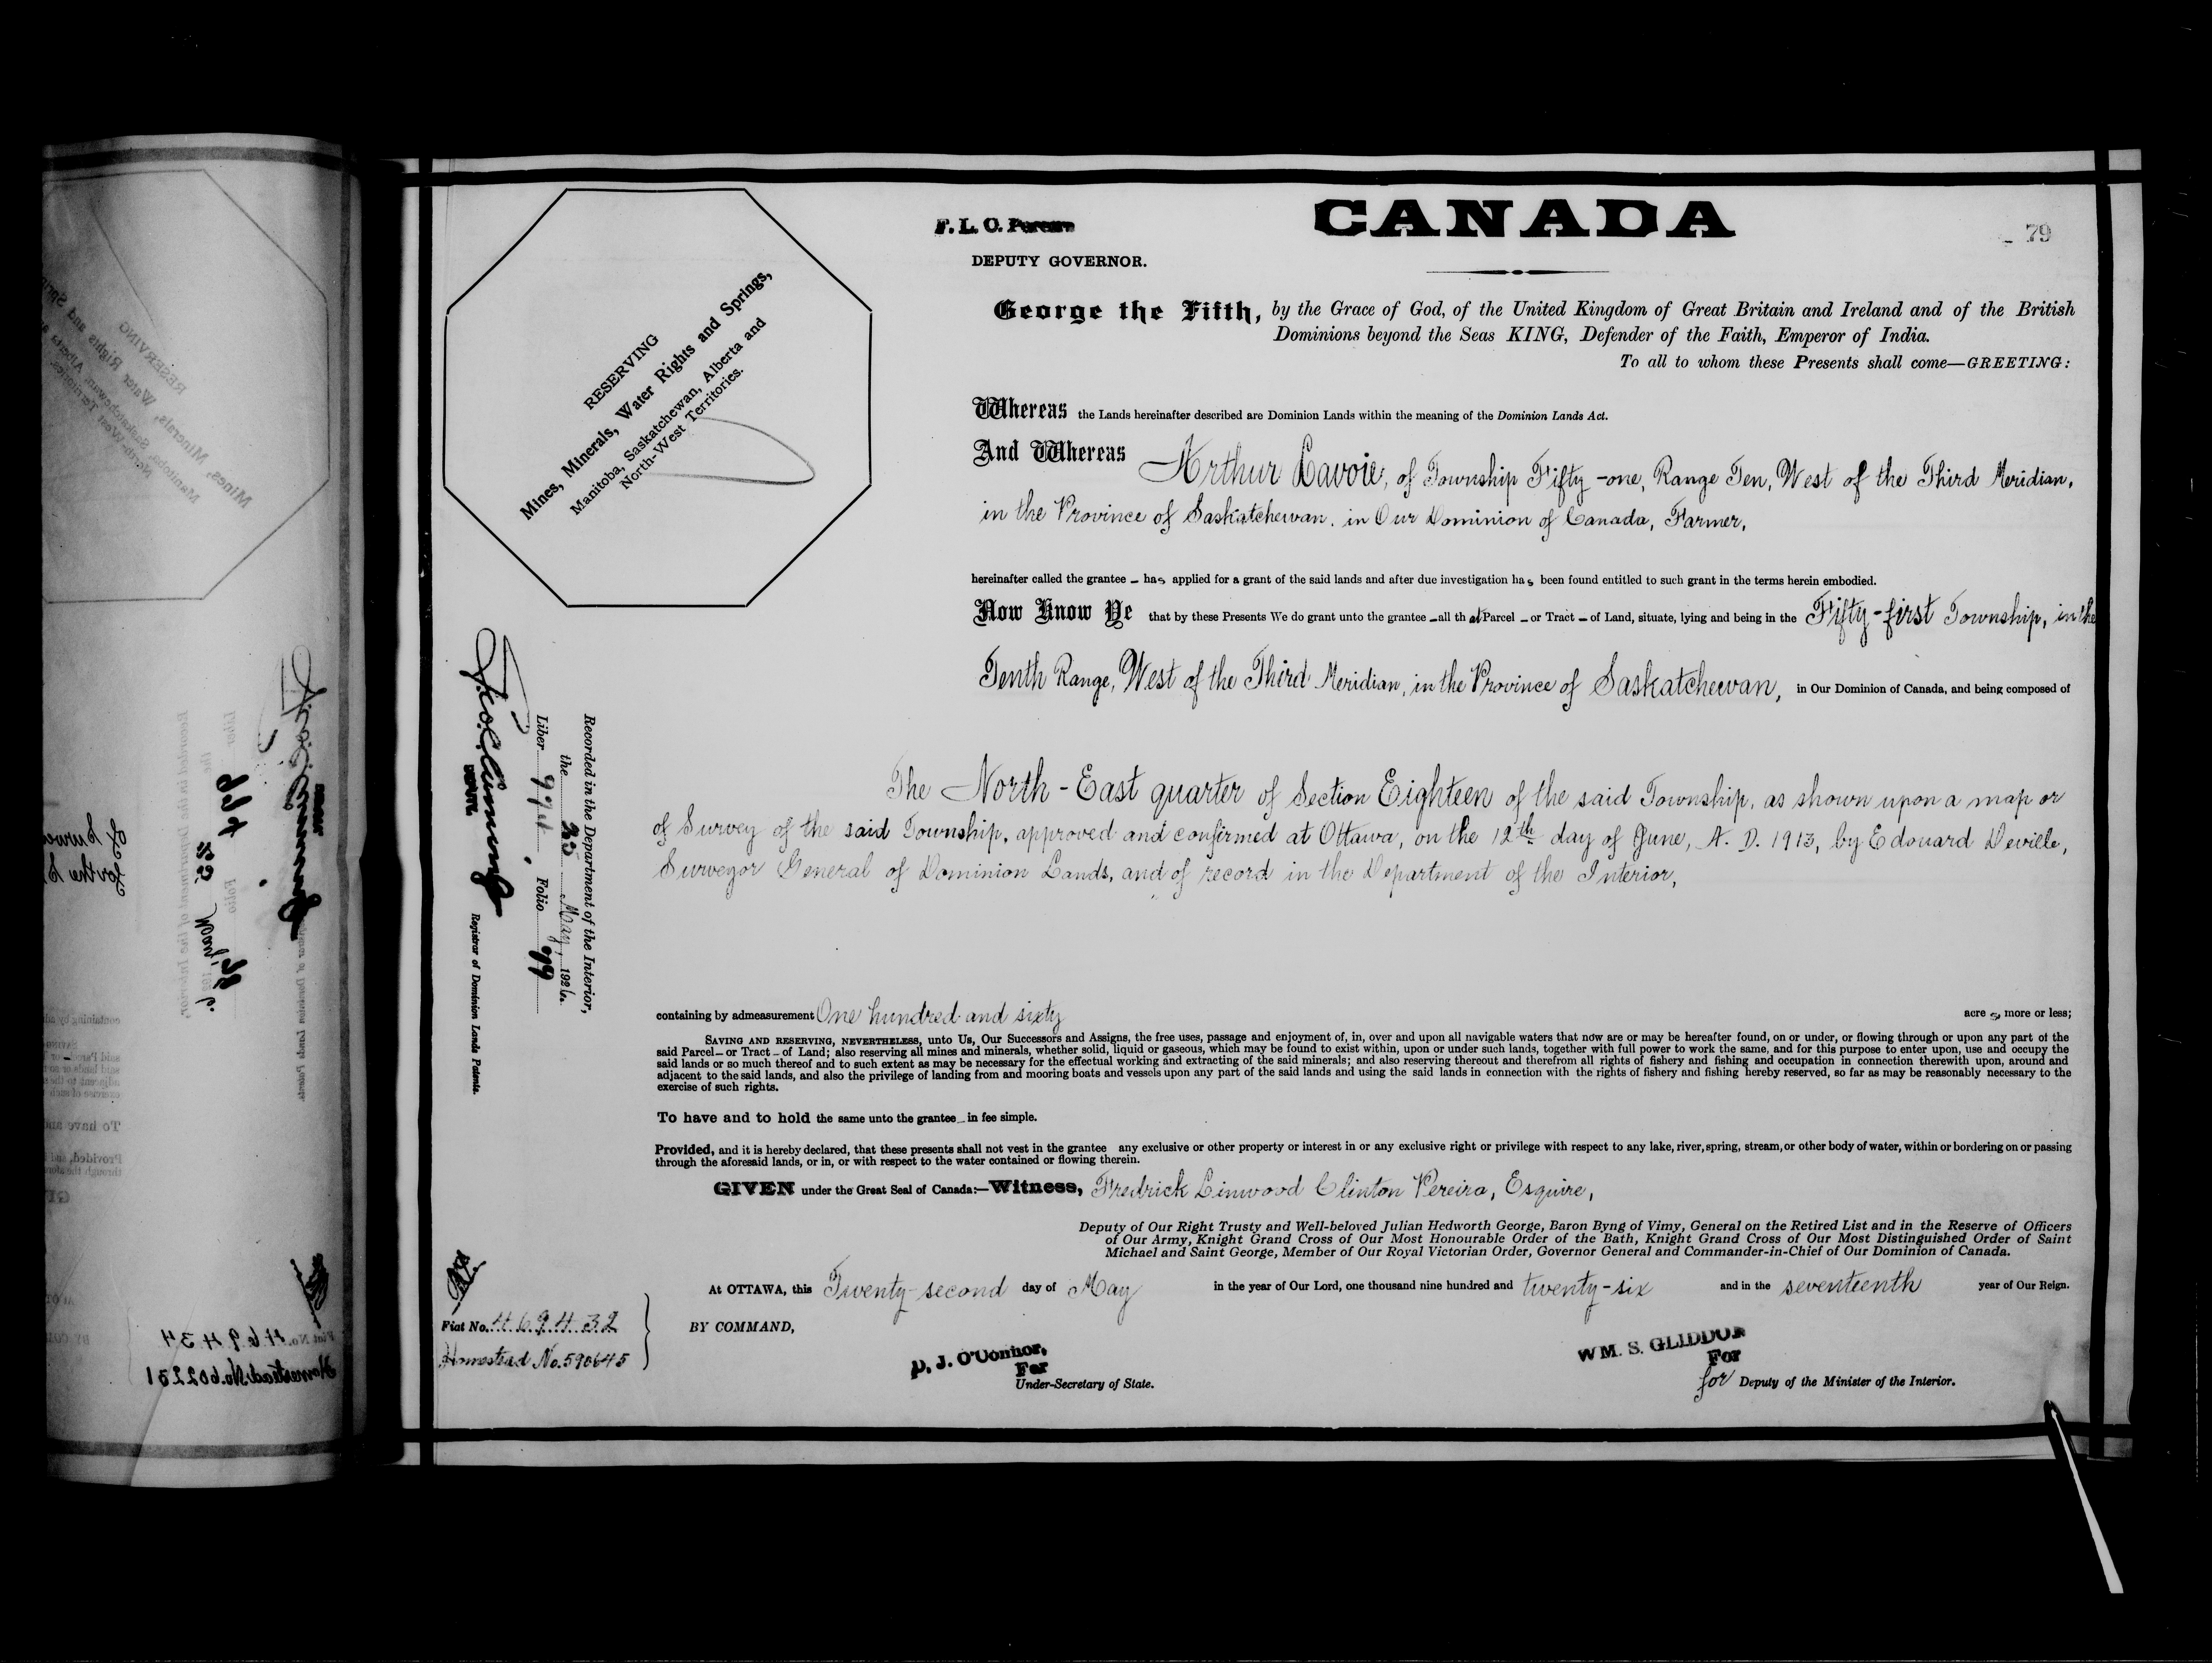 CANADA
79
F. L. O.
DEPUTY GOVERNOR.
George the Fifth, by the Grace of God, of the United Kingdom of Great Britain and Ireland and of the British
Dominions beyond the Seas KING, Defender of the Faith, Emperor of India.
To all to whom these Presents shall come—GREETING:
RESERVING
Mines, Minerals, Water Rights and Springs,
Manitoba, Saskatchewan, Alberta and
North-West Territories.
Whereas the Lands hereinafter described are Dominion Lands within the meaning of the Dominion Lands Act.
And Whereas Arthur Lavoie, of Township Fifty-one, Range Ten, West of the Third Meridian,
in the Province of Saskatchewan, in Our Dominion of Canada, Farmer,
hereinafter called the grantee – has applied for a grant of the said lands and after due investigation has been found entitled to such grant in the terms herein embodied.
Now Know Ye that by these Presents We do grant unto the grantee – all that Parcel – or Tract – of Land, situate, lying and being in the Fifty-first Township, in the
Tenth Range, West of the Third Meridian, in the Province of Saskatchewan, in Our Dominion of Canada, and being composed of
The North-East quarter of Section Eighteen of the said Township, as shown upon a map or
of Survey of the said Township, approved and confirmed at Ottawa, on the 12th day of June, A. D. 1913, by Edouard Deville,
Surveyor General of Dominion Lands, and of record in the Department of the Interior,
Recorded in the Department of the Interior,
the 25 May, 1926.
Liber Folio 79
DEPUTY Registrar of Dominion Lands Patents.
containing by admeasurement One hundred and sixty acres more or less;
SAVING AND RESERVING, NEVERTHELESS, unto Us, Our Successors and Assigns, the free uses, passage and enjoyment of, in, over and upon all navigable waters that now are or may be hereafter found, on or under, or flowing through or upon any part of the
said Parcel – or Tract – of Land; also reserving all mines and minerals, whether solid, liquid or gaseous, which may be found to exist within, upon or under such lands, together with full power to work the same, and for this purpose to enter upon, use and occupy the
said lands or so much thereof and to such extent as may be necessary for the effectual working and extracting of the said minerals; and also reserving thereout and therefrom all rights of fishery and fishing and occupation in connection therewith upon, around and
adjacent to the said lands, and also the privilege of landing from and mooring boats and vessels upon any part of the said lands and using the said lands in connection with the rights of fishery and fishing hereby reserved, so far as may be reasonably necessary to the
exercise of such rights.
To have and to hold the same unto the grantee – in fee simple.
Provided, and it is hereby declared, that these presents shall not vest in the grantee any exclusive or other property or interest in or any exclusive right or privilege with respect to any lake, river, spring, stream, or other body of water, within or bordering on or passing
through the aforesaid lands, or in, or with respect to the water contained or flowing therein.
GIVEN under the Great Seal of Canada:—Witness, Fredrick Linwood Clinton Pereira, Esquire,
Deputy of Our Right Trusty and Well-beloved Julian Hedworth George, Baron Byng of Vimy, General on the Retired List and in the Reserve of Officers
of Our Army, Knight Grand Cross of Our Most Honourable Order of the Bath, Knight Grand Cross of Our Most Distinguished Order of Saint
Michael and Saint George, Member of Our Royal Victorian Order, Governor General and Commander-in-Chief of Our Dominion of Canada.
At OTTAWA, this Twenty-second day of May in the year of Our Lord, one thousand nine hundred and twenty-six and in the seventeenth year of Our Reign.
Fiat No. 469432
Homestead No. 590645
BY COMMAND,
D. J. O'Connor,
For
Under-Secretary of State.
WM. S. GLIDDON
For
for Deputy of the Minister of the Interior.